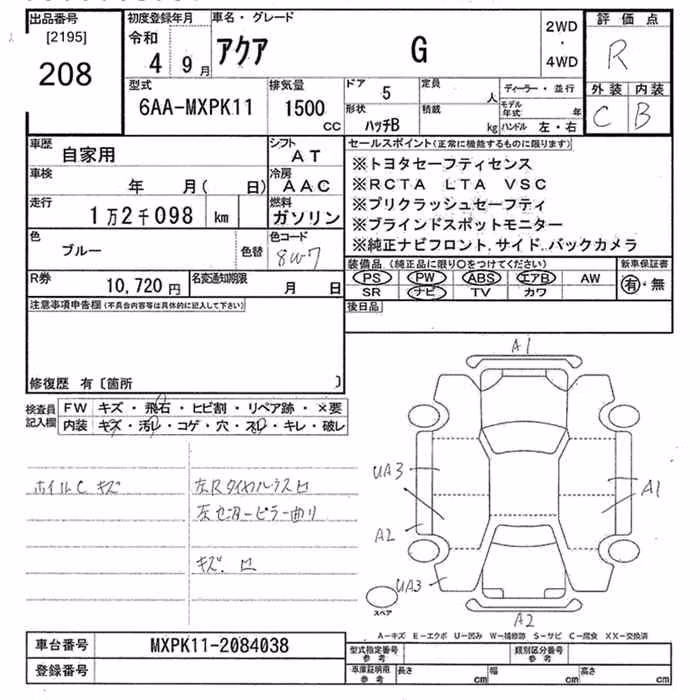 出品番号
[2195]
208
初度登録年月
令和
4 9月
車名・グレード
アクア G
2WD
・
4WD
評価点
R
外装 内装
C B
型式
6AA-MXPK11
排気量
1500
CC
ドア
5
形状
ハッチB
定員
人
積載
kg
ディーラー・並行
モデル年式 年
ハンドル 左・右
車歴
自家用
シフト
AT
車検
年 月( 日)
冷房
AAC
走行
1万2千098 km
燃料
ガソリン
色
ブルー
色替
色コード
8W7
R券
10,720円
名変通知期限
月 日
セールスポイント(正常に機能するものに限ります)
※トヨタセーフティセンス
※RCTA LTA VSC
※プリクラッシュセーフティ
※ブラインドスポットモニター
※純正ナビフロント.サイド..バックカメラ
装備品(純正品に限り○をつけてください)
新車保証書
PS PW ABS エアB AW
有・無
SR ナビ TV カワ
後日品
注意事項申告欄(不具合内容等は具体的に記入して下さい)
修復歴 有〔箇所 〕
検査員記入欄
FW キズ・飛石・ヒビ割・リペア跡・×要
内装 キズ・汚レ・コゲ・穴・スレ・キレ・破レ
ホイルC キズ
左センターピラー曲り
キズ.
A1
UA3
A1
A2
UA3
A2
スペア
A-キズ E-エクボ U-凹み W-補修跡 S-サビ C-腐食 XX-交換済
車台番号
MXPK11-2084038
登録番号
型式指定番号
参考
類別区分番号
参考
車庫証明用
参考
長さ cm
幅 cm
高さ cm